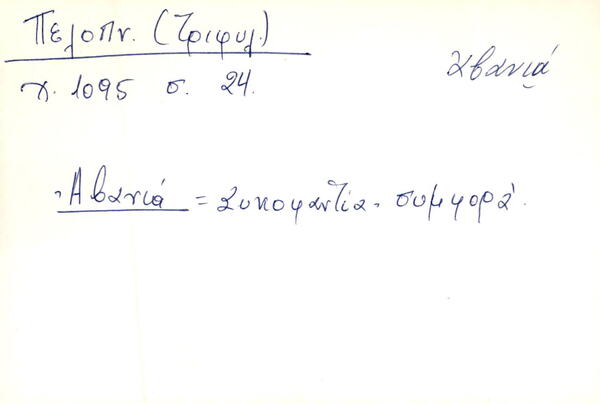 Πελοπν. (Τριφυλ.)
αβανιά
χ. 1095 σ. 24.
Ἀβανιά = Συκοφαντία, συμφορά.